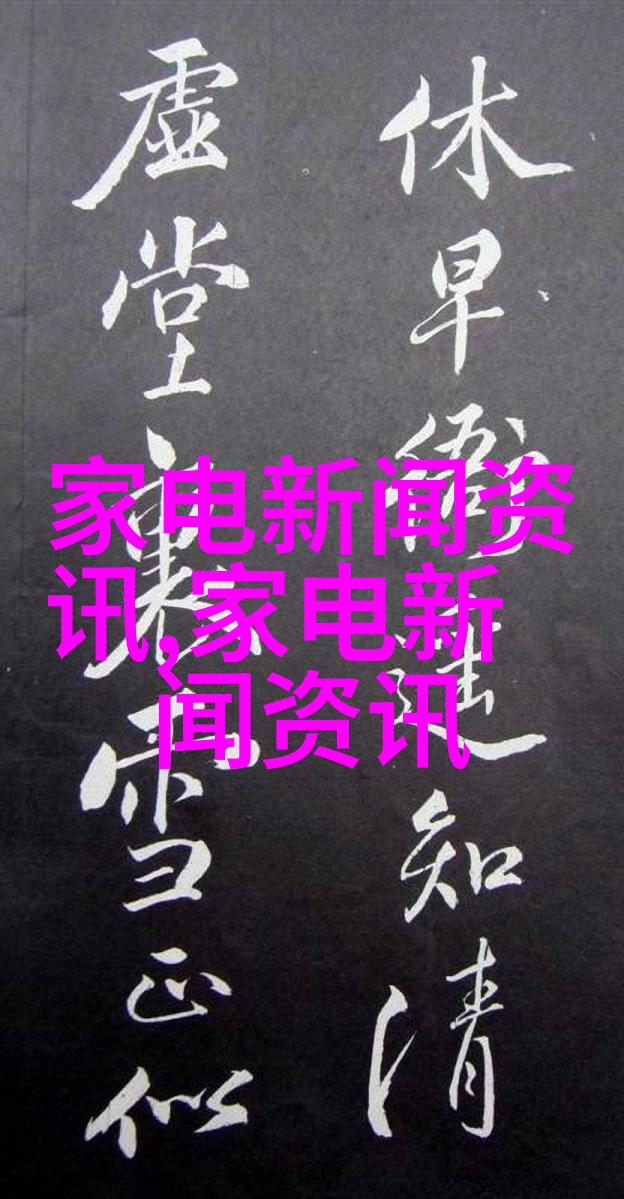 休早衙知清
虚堂雪正似
家电新闻资
讯,家电新
闻资讯